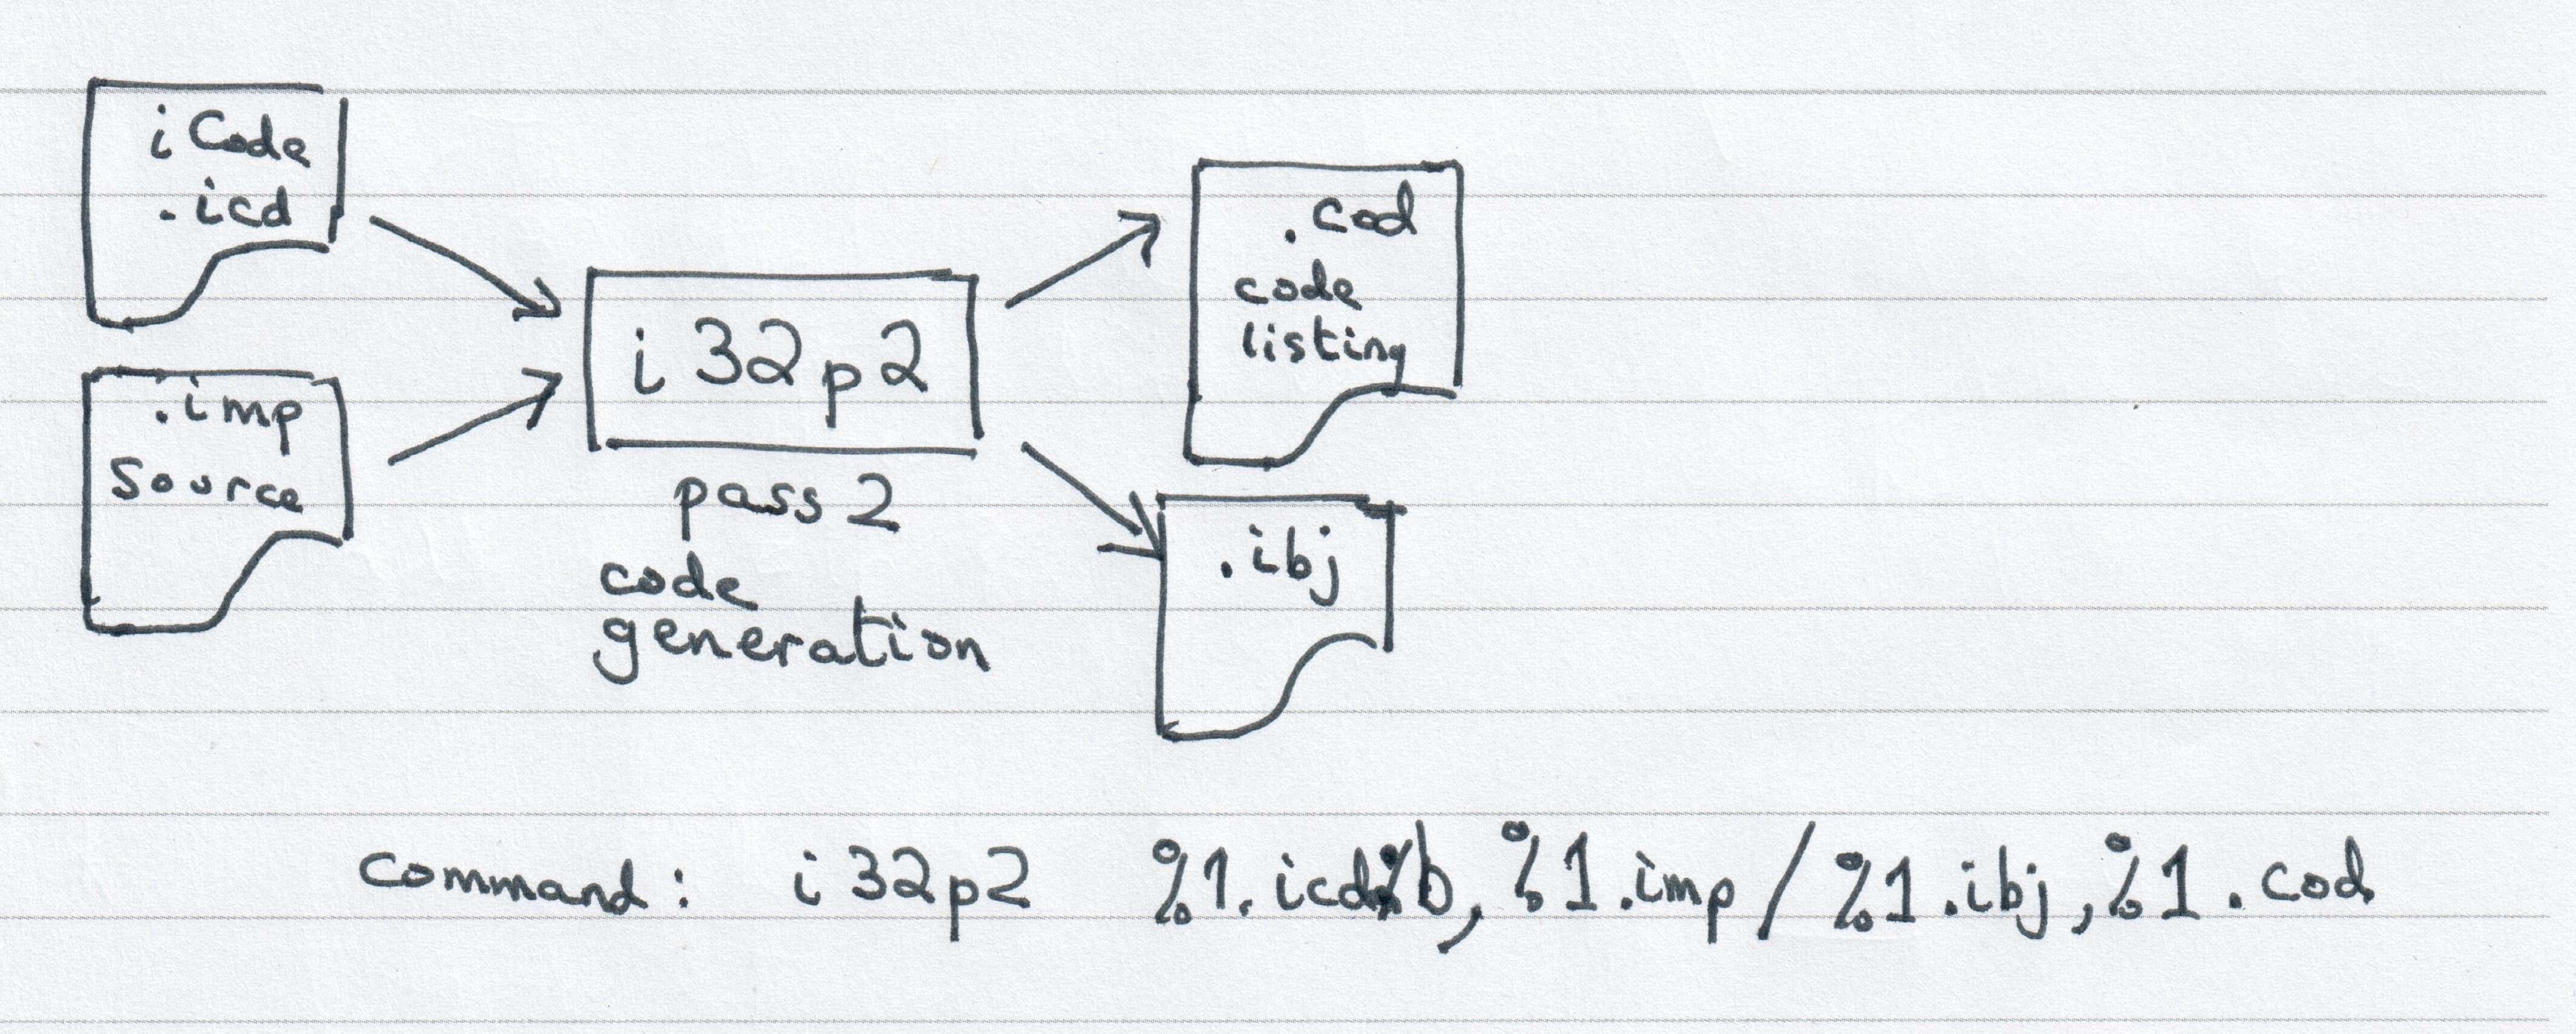 iCode
.icd
.imp
Source
i32p2
pass 2
code
generation
.cod
code
listing
.ibj
Command: i32p2 %1.icd%b, %1.imp/%1.ibj,%1.cod